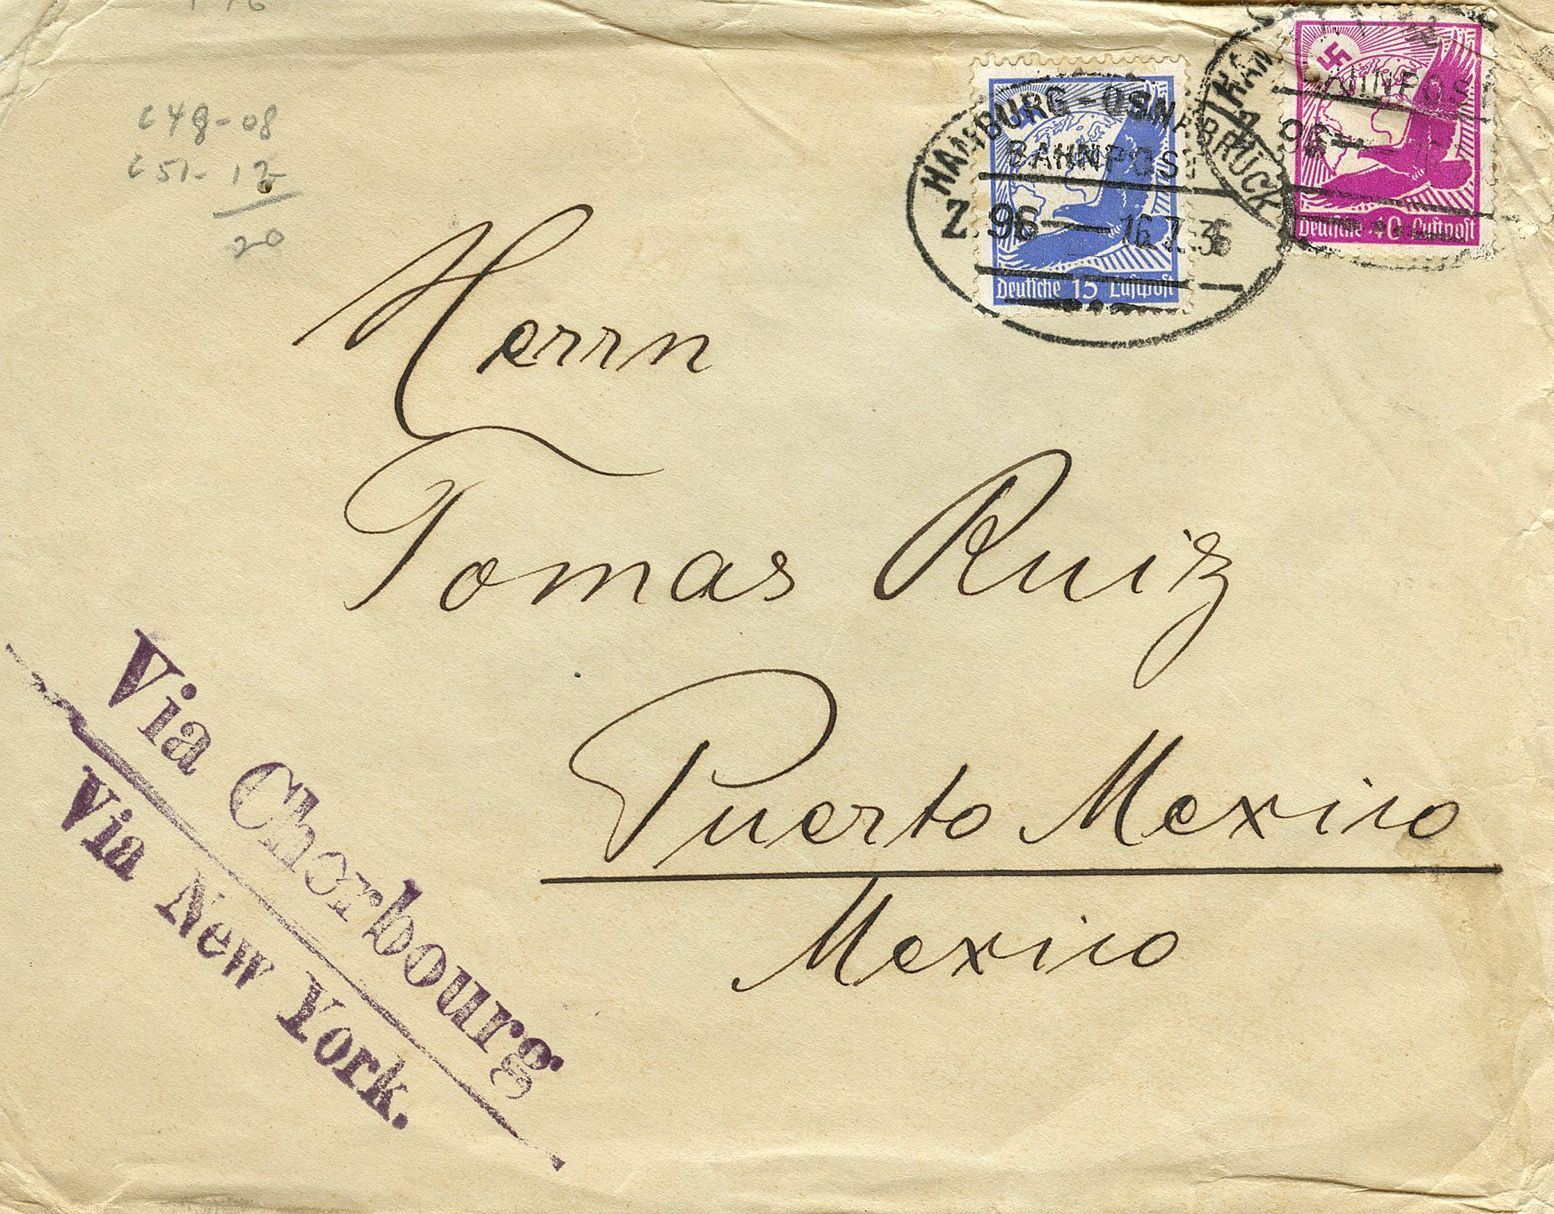 C48-08
C51-12
20
HAMBURG-OSNABRÜCK
BAHNPOST
Z 96 16.7.36
Deutsche 15 Luftpost
HAM
BAHNPOST
Z 96
Deutsche 40 Luftpost
Herrn
Tomas Ruiz
Puerto Mexico
Mexico
Via Cherbourg
Via New York.